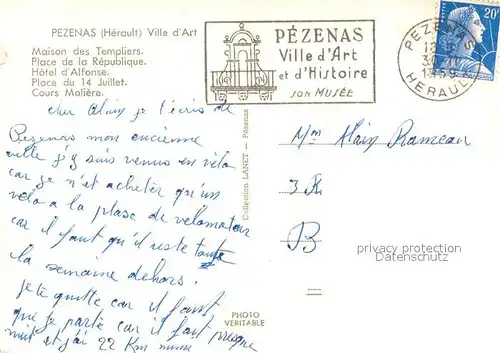 PEZENAS (Hérault) Ville d'Art
Maison des Templiers.
Place de la République.
Hôtel d'Alfonse.
Place du 14 Juillet.
Cours Molière.
PÉZENAS
Ville d'Art
et d'Histoire
SON MUSÉE
PEZENAS
1959
HERAULT
20F
cher Alain je t'écris de
Pezenas mon ancienne
ville j'y suis venus en vélo
car je n'et acheter qu'un
vélo a la place de velomoteur
car il faut qu'il reste toute
la semaine dehors.
je te quitte car il faut
que je parte car il faut presque
nuit et j'ai 22 Km
Collection LANET - Pézenas
PHOTO
VERITABLE
Mon Alain Rameau
3 R
B
privacy protection
Datenschutz